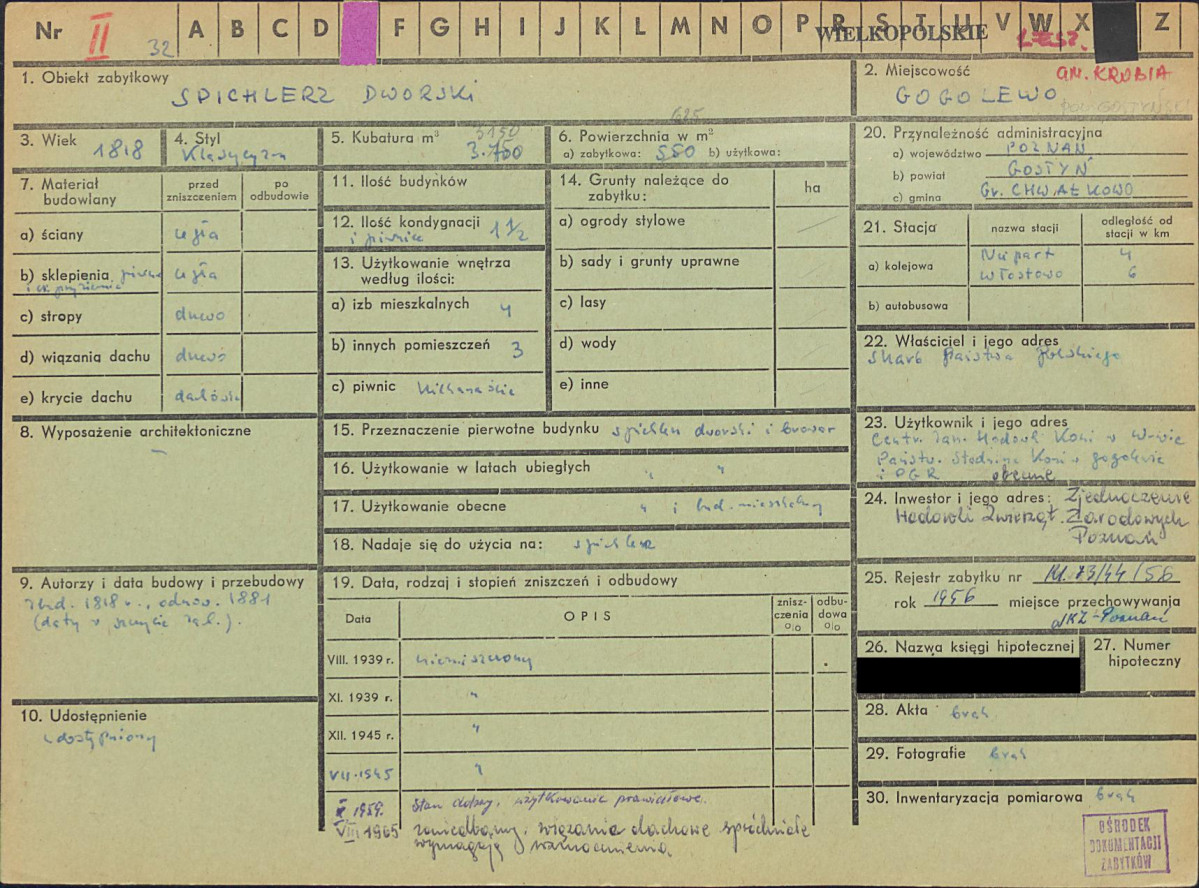 Nr II 32 A B C D F G H I J K L M N O P R S T U V W X Z
WIELKOPOLSKIE
LESZ.
1. Obiekt zabytkowy
SPICHLERZ DWORSKI
2. Miejscowość
GM. KROBIA
GOGOLEWO
3. Wiek 1818
4. Styl
Klasycyzm
5. Kubatura m³ 3150
3.700
6. Powierzchnia w m³ 625
a) zabytkowa: 550 b) użytkowa:
20. Przynależność administracyjna
a) województwo POZNAŃ
b) powiat GOSTYŃ
c) gmina Gr. CHWAŁKOWO
7. Materiał budowlany
przed zniszczeniem
po odbudowie
a) ściany cegła
b) sklepienia piwnic cegła
c) stropy drewo
d) wiązania dachu drewo
e) krycie dachu dachówka
11. Ilość budynków
12. Ilość kondygnacji 1 1/2
i piwnice
13. Użytkowanie wnętrza
według ilości:
a) izb mieszkalnych 4
b) innych pomieszczeń 3
c) piwnic kilkanaście
14. Grunty należące do
zabytku:
ha
a) ogrody stylowe
b) sady i grunty uprawne
c) lasy
d) wody
e) inne
21. Stacja
nazwa stacji
odległość od
stacji w km
a) kolejowa Niepart 4
Włostowo 6
b) autobusowa
22. Właściciel i jego adres
Skarb Państwa Polskiego
8. Wyposażenie architektoniczne
–
15. Przeznaczenie pierwotne budynku spichlerz dworski i browar
16. Użytkowanie w latach ubiegłych " "
17. Użytkowanie obecne " i bud. mieszkalny
18. Nadaje się do użycia na: spichlerz
23. Użytkownik i jego adres
Centr. Zarz. Hodowli Koni w W-wie
Państw. Stadnina Koni w Gogolewie
i PGR obecnie
24. Inwestor i jego adres: Zjednoczenie
Hodowli Zwierząt Zarodowych
Poznań
9. Autorzy i data budowy i przebudowy
zbud. 1818 r., odnow. 1881
(daty w szczycie zach.).
19. Data, rodzaj i stopień zniszczeń i odbudowy
Data
OPIS
znisz-
czenia
o|o
odbu-
dowa
o|o
VIII. 1939 r. niezniszczony
XI. 1939 r. "
XII. 1945 r. "
VII. 1945 "
X 1959. Stan dobry, użytkowanie prawidłowe.
VIII 1965 zaniedbany, wiązania dachowe spróchniałe
wymagają wzmocnienia
25. Rejestr zabytku nr Kl. 73/44/56
rok 1956 miejsce przechowywania
WKZ-Poznań
26. Nazwa księgi hipotecznej
27. Numer
hipoteczny
10. Udostępnienie
udostępniony
28. Akta brak
29. Fotografie brak
30. Inwentaryzacja pomiarowa brak
OŚRODEK
DOKUMENTACJI
ZABYTKÓW